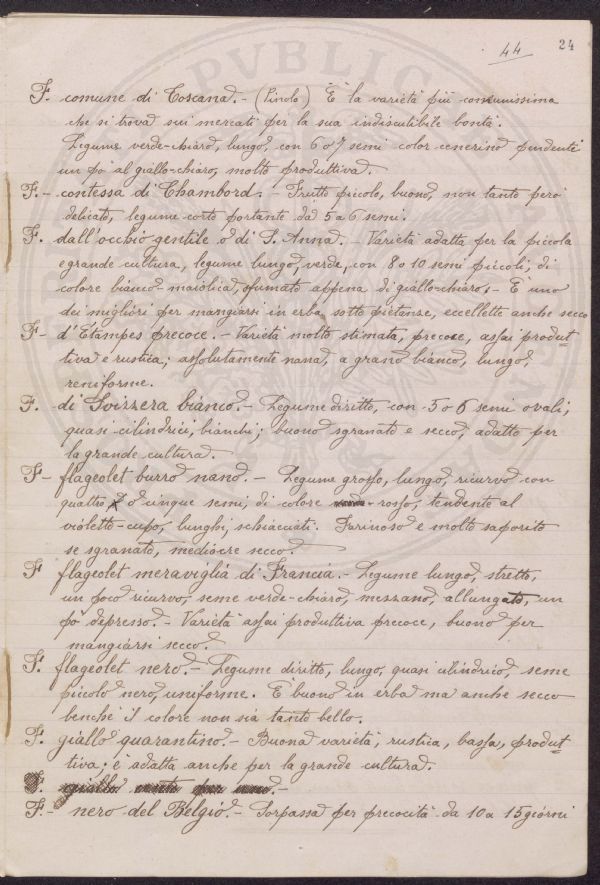 44
24
F. comune di Toscana. - (Pinolo) È la varietà più comunissima
che si trova sui mercati per la sua indiscutibile bontà.
Legume verde-chiaro, lungo, con 6 o 7 semi color cenerino pendenti
un po' al giallo-chiaro, molto produttiva.
F. - contessa di Chambord. Fritto piccolo, buono, non tanto però
delicato, legume corto portante da 5 a 6 semi.
F. dall'occhio gentile o di S. Anna. - Varietà adatta per la piccola
e grande cultura, legume lungo, verde, con 8 o 10 semi piccoli, di
colore bianco-maiolica, sfumato appena di giallo-chiaro. - È uno
dei migliori per mangiarsi in erba, sotto pietanse, eccellette anche secco
F- d'Etampes precoce. - Varietà molto stimata, precoce, assai produt-
tiva e rustica; assolutamente nana, a grano bianco, lungo,
reniforme.
F. di Svizzera bianco. - Legume diritto, con 5 o 6 semi ovali,
quasi cilindrici, bianchi; buono sgranato e secco, adatto per
la grande cultura.
F- flageolet burro nano. - Legume grosso, lungo, ricurvo con
quattro o cinque semi, di colore rosso, tendente al
violetto-cupo, lunghi, schiacciati. Farinoso e molto saporito
se sgranato, mediocre secco.
F flageolet meraviglia di Francia. - Legume lungo, stretto,
un poco ricurvo, seme verde-chiaro, mezzano, allungato, un
po' depresso. - Varietà assai produttiva precoce, buono per
mangiarsi secco.
F. flageolet nero. - Legume diritto, lungo, quasi cilindrico, seme
piccolo nero, uniforme. È buono in erba ma anche secco
benché il colore non sia tanto bello.
F. giallo quarantino. - Buona varietà, rustica, bassa, produt-
tiva; è adatta anche per la grande cultura.
F. giallo
F. - nero del Belgio. - Sorpassa per precocità da 10 a 15 giorni